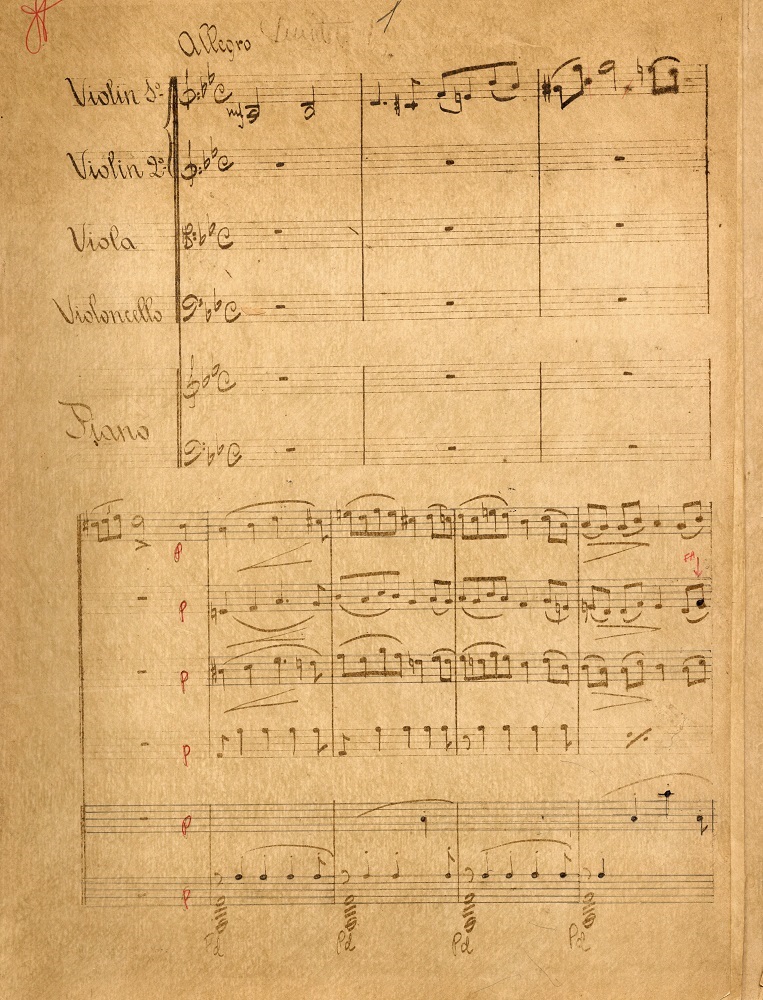 1
Allegro
Violin 1º
mf
Violin 2º
Viola
Violoncello
Piano
P
FA
P
P
P
P
P
Pd
Pd
Pd
Pd